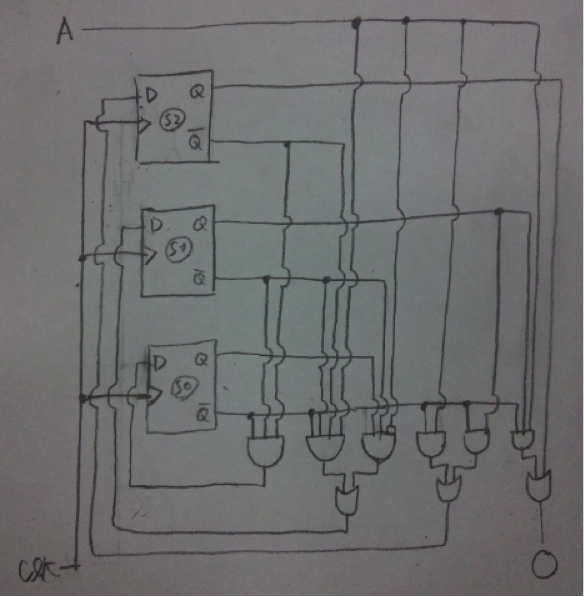 A
D Q
S2
Q̅
D Q
S1
Q̅
D Q
S0
Q̅
CLK
O